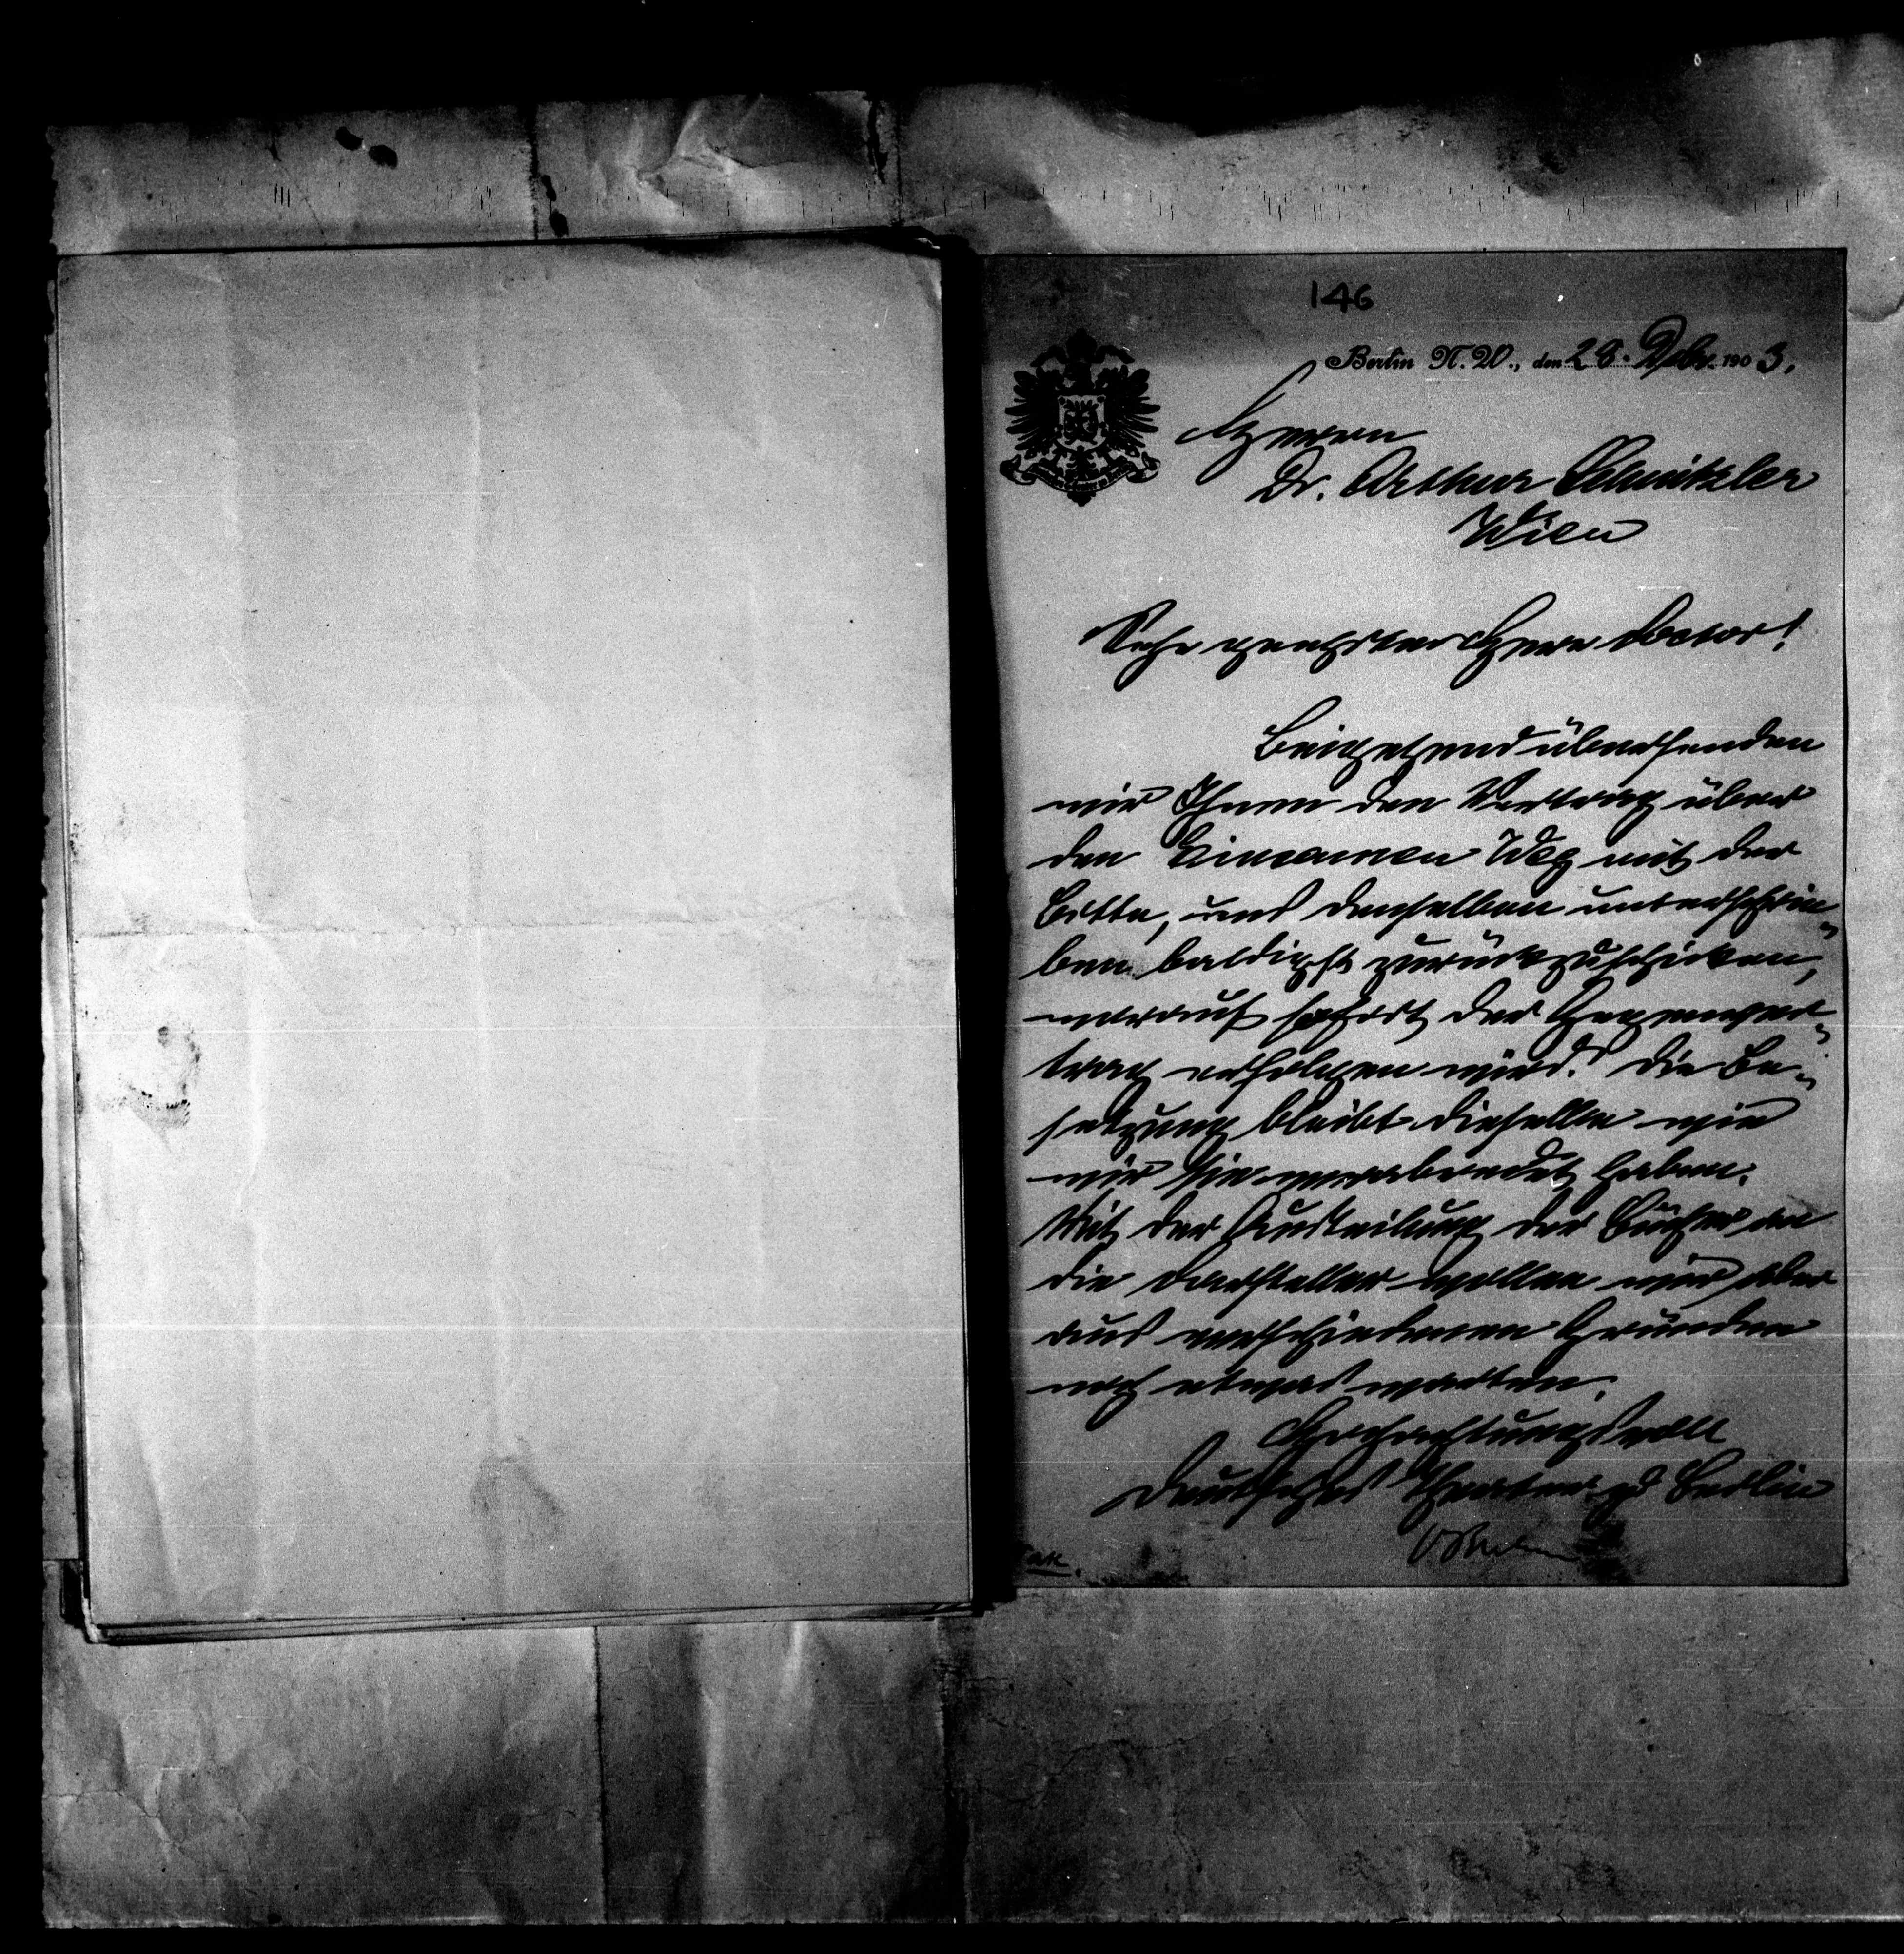 146
Berlin N.W., den 28. Dzbr. 1903.
Herrn
Dr. Arthur Schnitzler
Wien
Sehr geehrter Herr Doctor!
Beigehend übersenden
wir Ihnen den Vertrag über
den Einsamen Weg mit der
Bitte, uns denselben unterschrie-
ben baldigst zurückzuschicken,
worauf sofort der Gegenver-
trag erfolgen wird. Die Be-
setzung bleibt dieselbe wie
wir sie verabredet haben.
Mit der Austeilung der Bücher an
die Darsteller wollen wir aber
aus verschiedenen Gründen
noch etwas warten.
Hochachtungsvoll
Deutsches Theater zu Berlin